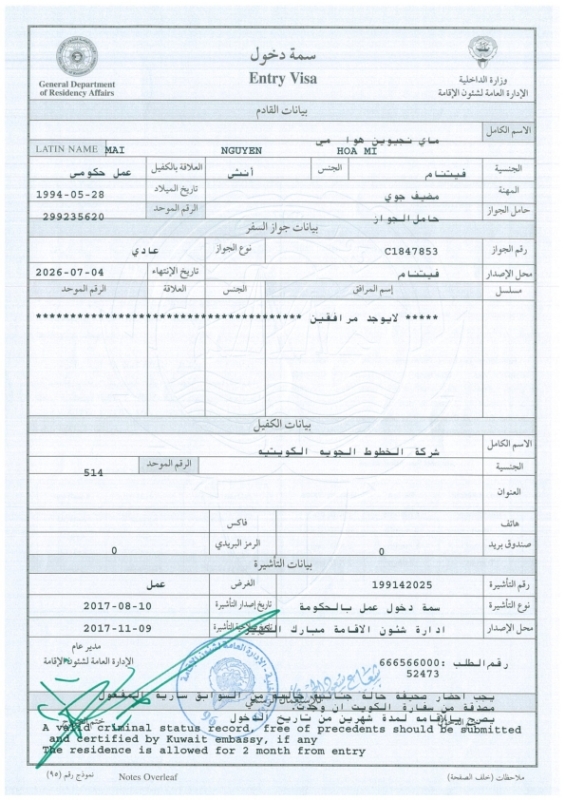 سمة دخول
Entry Visa
General Department
of Residency Affairs
وزارة الداخلية
الإدارة العامة لشئون الإقامة
بيانات القادم
الاسم الكامل
ماي نجيوين هوا مي
LATIN NAME MAI NGUYEN HOA MI
الجنسية فيتنام الجنس أنثى العلاقة بالكفيل عمل حكومي
المهنة مضيف جوي تاريخ الميلاد 1994-05-28
حامل الجواز حامل الجواز الرقم الموحد 299235620
بيانات جواز السفر
رقم الجواز C1847853 نوع الجواز عادي
محل الإصدار فيتنام تاريخ الإنتهاء 2026-07-04
مسلسل إسم المرافق الجنس العلاقة الرقم الموحد
***** لايوجد مرافقين **************************************
بيانات الكفيل
الاسم الكامل شركة الخطوط الجويه الكويتيه
الجنسية الرقم الموحد 514
العنوان
هاتف فاكس
صندوق بريد 0 الرمز البريدي 0
بيانات التأشيرة
رقم التأشيرة 199142025 الغرض عمل
نوع التأشيرة سمة دخول عمل بالحكومة تاريخ إصدار التأشيرة 2017-08-10
محل الإصدار ادارة شئون الاقامة مبارك الكبير التأشيرة 2017-11-09
مدير عام
الإدارة العامة لشئون الإقامة
رقم الطلب: 666566000
52473
يجب احضار صحيفة حالة جنائية خالية من السوابق سارية المفعول
مصدقة من سفارة الكويت ان وجدت.
يصرح بالاقامه لمدة شهرين من تاريخ الدخول
A valid criminal status record, free of precedents should be submitted
and certified by Kuwait embassy, if any
The residence is allowed for 2 month from entry
نموذج رقم (٩٥) Notes Overleaf ملاحظات (خلف الصفحة)